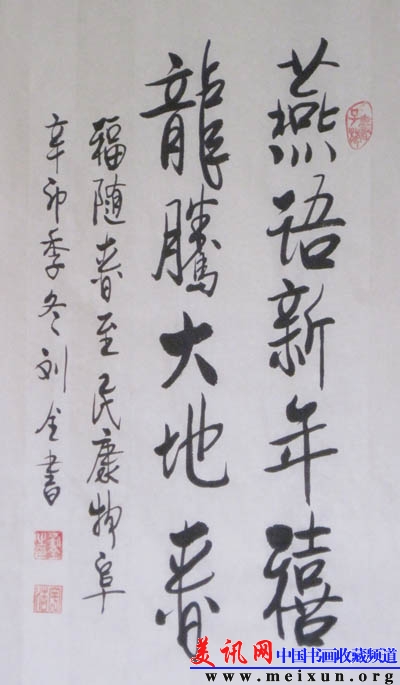 燕语新年禧
龍騰大地春
福随春至民康物阜
辛卯季冬刘金書
美讯网
中国书画收藏频道
www.meixun.org